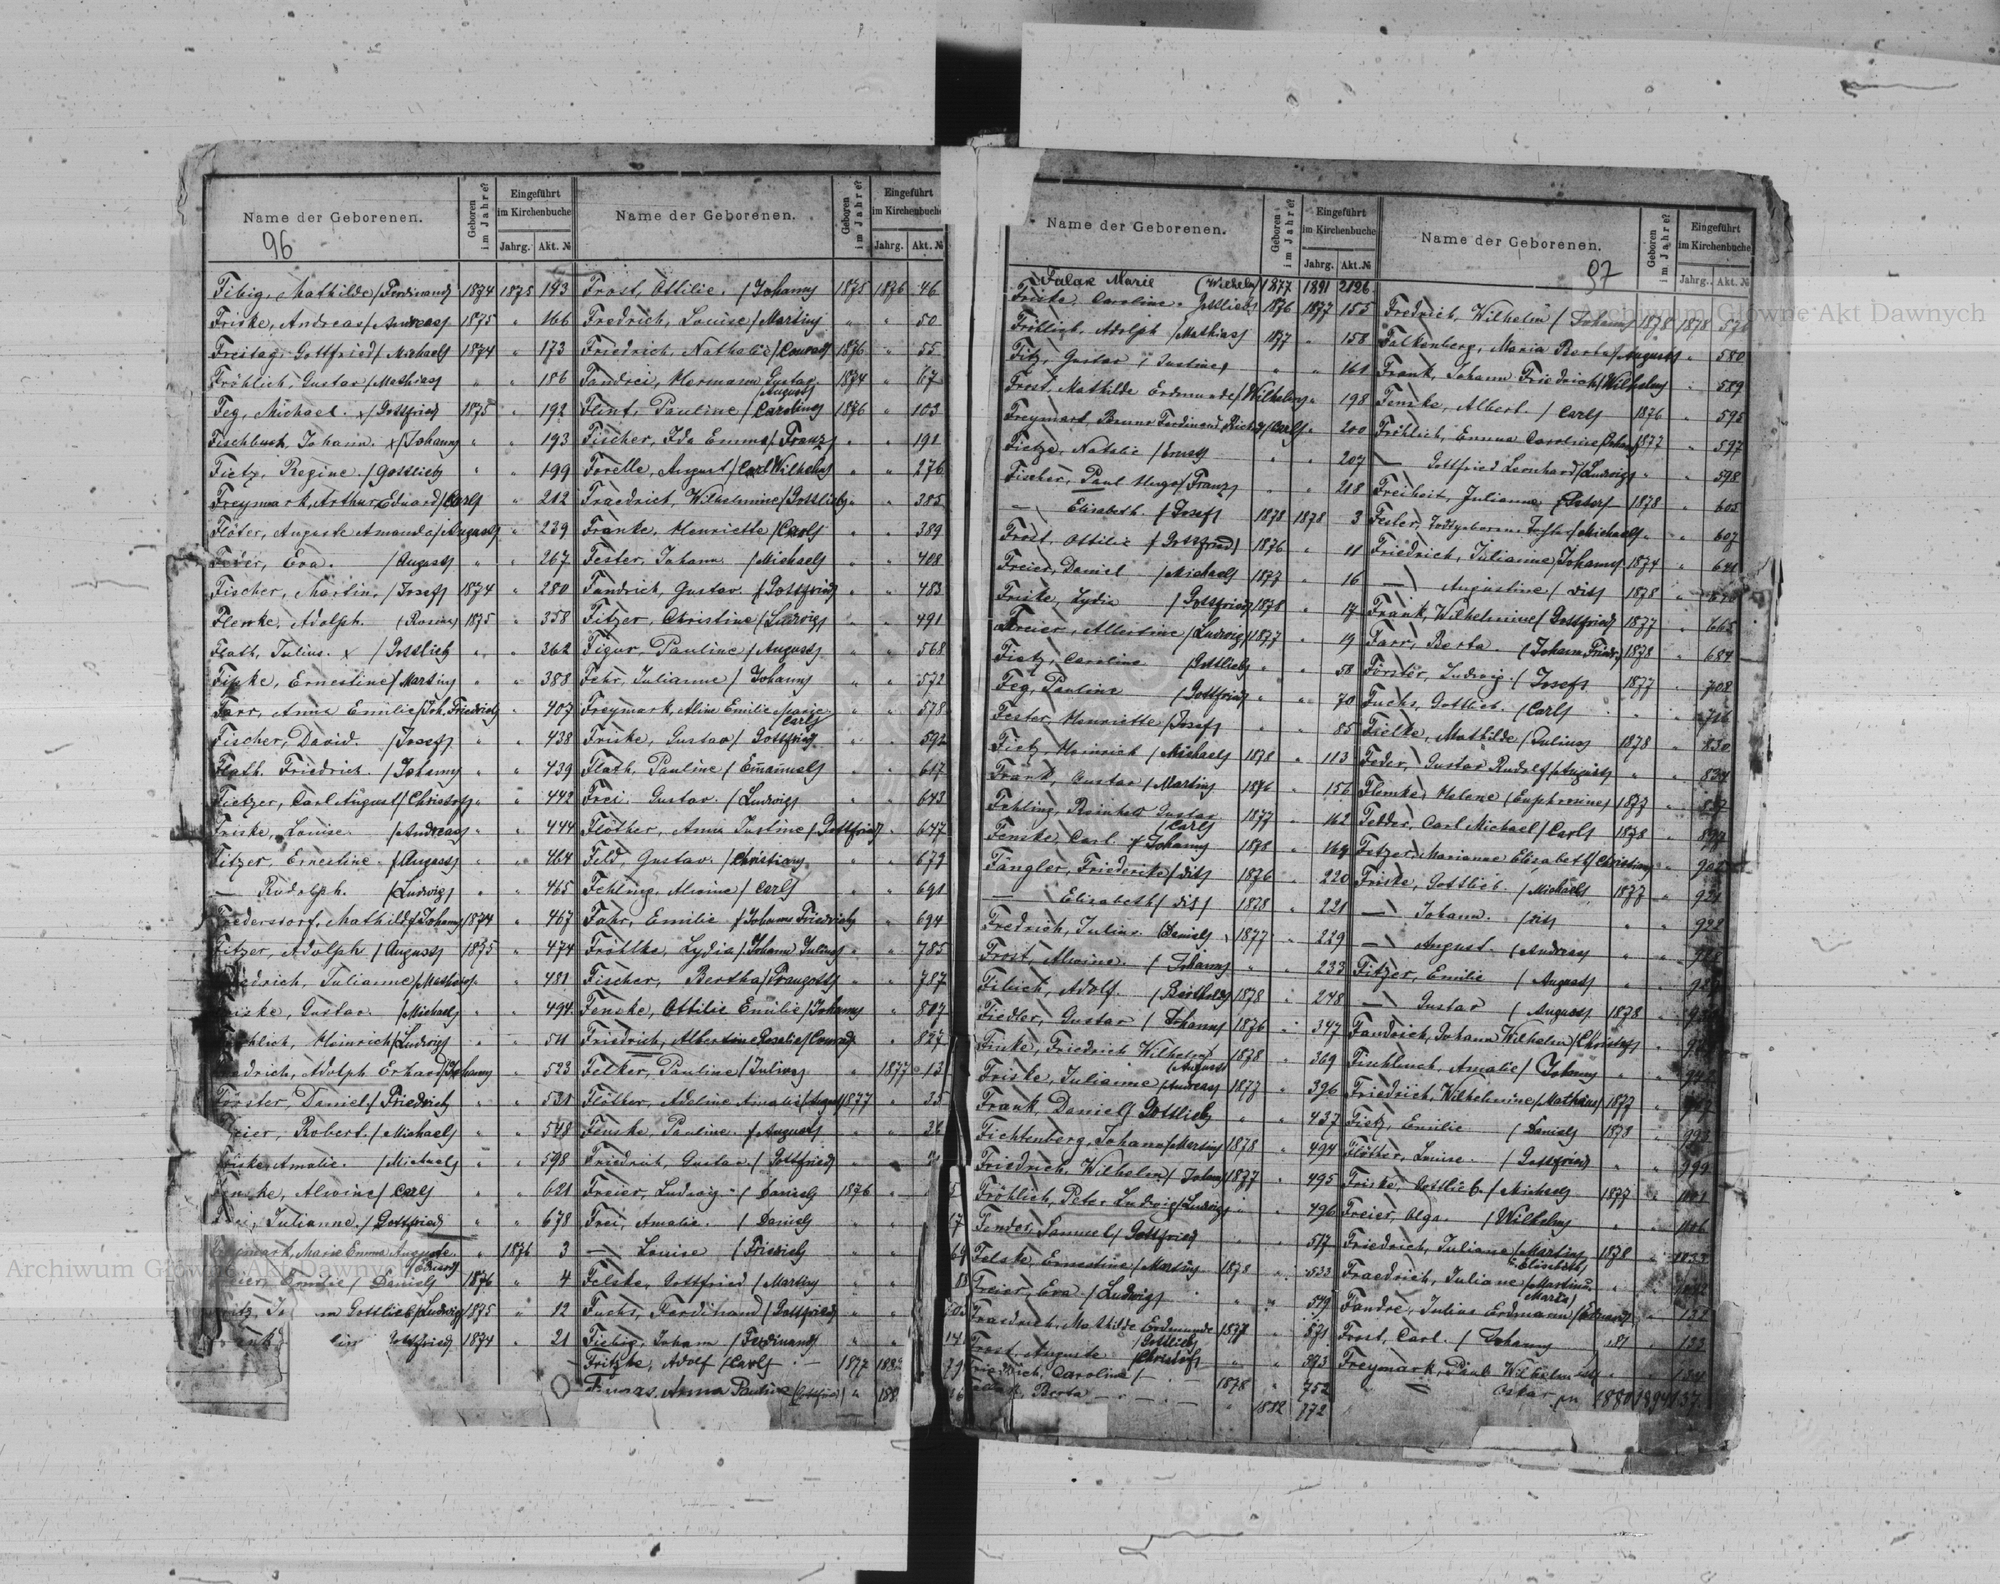 96
Name der Geborenen.
Geboren im Jahre?
Eingeführt im Kirchenbuche
Jahrg.
Akt. №
Fibig, Mathilde /Ferdinand/ 1874 1875 143
Friske, Andreas /Andreas/ 1875 " 166
Freitag, Gottfried /Michael/ 1874 " 173
Fröhlich, Gustav /Mathias/ " " 186
Feg, Michael. x /Gottfried/ 1875 " 192
Fischbuch, Johann. x /Johann/ " " 193
Fietz, Regine. /Gottlieb/ " " 199
Freymark, Arthur Eduard /Carl/ " 212
Flöter, Auguste Amanda /August/ " 239
Feder, Eva. /August/ " " 267
Fischer, Martin, /Josef/ 1874 " 280
Flemke, Adolph. /Rosine/ 1875 " 358
Flath, Julius. x /Gottlieb/ " " 362
Finke, Ernestine /Martin/ " " 388
Farr, Anna Emilie /Joh. Friedrich/ " 407
Fischer, David. /Josef/ " " 438
Flath, Friedrich. /Johann/ " " 439
Fietzer, Carl August /Christof/ " " 442
Friske, Louise. /Andreas/ " " 444
Fitzer, Ernestine. /August/ " " 464
— Rudolph. /Ludwig/ " " 465
Federsdorf, Mathilde /Johann/ 1874 " 467
Fitzer, Adolph /August/ 1875 " 474
edrich, Julianne /Mathias/ " " 481
iske, Gustav. /Michael/ " " 494
hlich, Heinrich /Ludwig/ " " 511
edrich, Adolph Erhard /Johann/ " " 523
Förster, Daniel /Friedrich/ " " 531
eier, Robert. /Michael/ " " 548
iske, Amalie. /Michael/ " " 598
nske, Alwine /Carl/ " " 621
ei, Julianne. /Gottfried/ " " 678
eymark, Marie Emma Auguste /Eduard/ " 1876 3
eier, Emilie /Daniel/ 1876 " 4
itz, Jo m Gottlieb /Ludwig/ 1875 " 12
/Gottfried/ 1874 " 21
Name der Geborenen.
Geboren im Jahre?
Eingeführt im Kirchenbuche
Jahrg.
Akt. №
Frost, Ottilie. /Johann/ 1875 1876 46
Fredrich, Louise /Martin/ " " 50
Friedrich, Nathalie /Conrad/ 1876 " 55
Fandrei, Hermann Gustav /August/ 1874 " 67
Flint, Pauline /Caroline/ 1876 " 103
Fischer, Ida Emma /Franz/ " " 191
Forelle, August /Carl Wilhelm/ " " 276
Fraedrich, Wilhelmine /Gottlieb/ " " 385
Franke, Henriette /Carl/ " " 389
Fester, Johann /Michael/ " " 408
Fandrich, Gustav. /Gottfried/ " " 483
Fitzer, Christine /Ludwig/ " " 491
Figur, Pauline /August/ " " 568
Fehr, Julianne /Johann/ " " 572
Freymark, Aline Emilie Marie /Carl/ " " 578
Friske, Gustav /Gottfried/ " " 592
Flath, Pauline /Emanuel/ " " 617
Frei, Gustav. /Ludwig/ " " 643
Flöther, Anna Justine /Gottfried/ " 647
Feld, Gustav. /Christian/ " " 679
Fehling, Alwine /Carl/ " " 691
Fahr, Emilie /Johann Friedrich/ " " 694
Fröhlke, Lydia /Johann Julius/ " " 785
Fischer, Bertha /Traugott/ " " 787
Fenske, Ottilie Emilie /Johann/ " " 807
Friedrich, Albertine Rosalie /Conrad/ " 827
Felker, Pauline /Julius/ " 1877 13
Flöther, Adeline Amalie /August/ 1877 " 35
Fenske, Pauline. /August/ " "
Friedrich, Gustav /Gottfried/ " "
Freier, Ludwig /Daniel/ 1876 "
Frei, Amalie. /Daniel/ " "
— Louise /Friedrich/ " "
Felske, Gottfried /Martin/ " "
Fuchs, Ferdinand /Gottfried/ " "
Fiebig, Johann /Ferdinand/ " "
Fritzke, Adolf /Carl/ 1877
Anna Pauline /Gottfried/ "
97
Name der Geborenen.
Geboren im Jahre?
Eingeführt im Kirchenbuche
Jahrg.
Akt. №
Falak Marie /Wilhelm/ 1877 1891 2126
Friske, Caroline. /Gottlieb/ 1876 1877 155
Fröhlich, Adolph /Mathias/ 1877 " 158
Fitz, Gustav /Justine/ " " 161
Frost, Mathilde Erdmunde /Wilhelm/ " 198
Freymark, Bruno Ferdinand Richard /Carl/ " 200
Fietze, Natalie /Ernst/ " " 207
Fischer, Paul Hugo /Franz/ " " 218
— Elisabeth. /Josef/ 1878 1878 3
Frost, Ottilie /Gottfried/ 1876 " 11
Freier, Daniel /Michael/ 1877 " 16
Friske, Lydia /Gottfried/ 1878 " 17
Freier, Albertine /Ludwig/ 1877 " 19
Fietz, Caroline. /Gottlieb/ " " 58
Feg, Pauline /Gottfried/ " " 70
Fester, Henriette /Josef/ " " 85
Fietz, Heinrich /Michael/ 1878 " 113
Frank, Gustav /Martin/ 1876 " 156
Fehling, Reinhold Gustav /Carl/ 1877 " 162
Fenske, Carl. /Johann/ 1878 " 169
Fängler, Friederike /dito/ 1876 " 220
— Elisabeth /dito/ 1878 " 221
Fredrich, Julius. /Daniel/ 1877 " 229
Frost, Alwine. /Johann/ " " 233
Fibich, Adolf. /Berthold/ 1878 " 248
Fiedler, Gustav /Johann/ 1876 " 347
Finke, Friedrich Wilhelm /August/ 1878 " 369
Friske, Julianne /Andreas/ 1877 " 396
Frank, Daniel /Gottlieb/ " " 437
Fichtenberg, Johann /Martin/ 1878 " 494
Friedrich, Wilhelm /Johann/ 1877 " 495
Fröhlich, Peter Ludwig /Ludwig/ " " 496
Fender, Samuel /Gottfried/ " " 517
Felske, Ernestine /Martin/ 1878 " 533
Freier, Eva /Ludwig/ " " 549
Fraedrich, Mathilde Erdmunde /Gottlieb/ 1877 " 571
Frost, Auguste /Christof/ " " 593
Friedrich, Caroline /— 1878 " 752
Berta — 1882 772
Name der Geborenen.
Geboren im Jahre?
Eingeführt im Kirchenbuche
Jahrg.
Akt. №
Fredrich, Wilhelm /Johann/ 1878 1878 576
Falkenberg, Maria Berta /August/ " 580
Frank, Johann Friedrich /Wilhelm/ " 589
Fenske, Albert. /Carl/ 1876 " 595
Fröhlich, Emma Caroline /Johann/ 1877 " 597
— Gottfried Leonhard /Ludwig/ " " 598
Freiheit, Julianne /Peter/ 1878 " 605
Fesler, Todtgeborne Tochter /Michael/ " " 607
Friedrich, Julianne /Johann/ 1874 " 641
— Augustine /dito/ 1878 "
Frank, Wilhelmine /Gottfried/ 1877 " 665
Farr, Berta. /Johann Friedr./ 1878 " 684
Förster, Ludwig. /Josef/ 1877 " 708
Fuchs, Gottlieb. /Carl/ " " 716
Fielke, Mathilde /Julius/ 1878 " 830
Feder, Gustav Rudolf /August/ " " 834
Flemke, Helene /Euphrosine/ 1877 " 887
Fedder, Carl Michael /Carl/ 1878 "
Fetzer, Marianne Elisabeth /Christian/ "
Friske, Gottlieb. /Michael/ 1877 " 921
— Johann. /dito/ " " 922
— August. /Andreas/ " "
Fitzer, Emilie /August/ " "
— Gustav /August/ 1878 "
Fandrich, Johann Wilhelm /Christof/ "
Fischbuch, Amalie /Johann/ " " 942
Friedrich, Wilhelmine /Mathäus/ 1877 "
Fietz, Emilie /Daniel/ 1878 " 993
Flöther, Louise. /Gottfried/ " " 999
Friske, Gottlieb. /Michael/ 1877 "
Freier, Olga. /Wilhelm/ " "
Friedrich, Juliane /Martin Elisabeth/ 1878 " 1033
Fraedrich, Juliane /Martin u. Maria/ " "
Fandré, Julius Erdmann /Eduard/ " 132
Frost, Carl. /Johann/ " 81 " 133
Freymark, Paul Wilhelm " " 134
Oskar 1880 1894 137
Archiwum Główne Akt Dawnych
Archiwum Główne Akt Dawnych